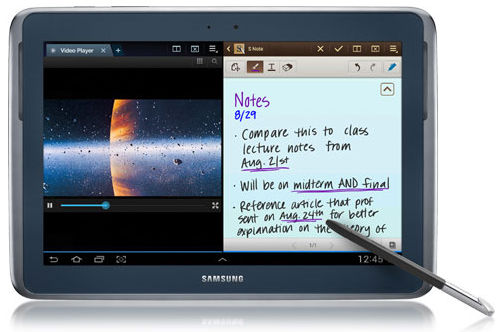 Video Player
S Note
Notes
8/29
• Compare this to class
lecture notes from
Aug. 21st
• Will be on midterm AND final
• Reference article that prof
sent on Aug. 24th for better
explanation on the theory of
1/1
12:45
SAMSUNG